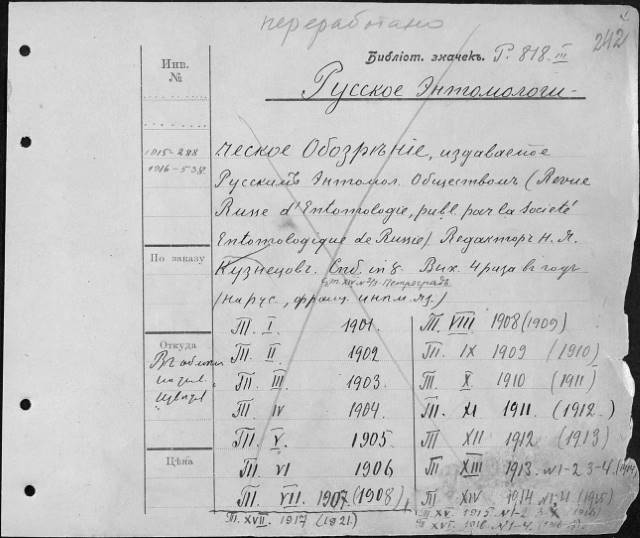 переработано
242
Библіот. значекъ. Р. 818 III
Инв.
№
Русское Энтомологи-
1915-288
1916-538
ческое Обозрѣніе, издаваемое
Русскимъ Энтомол. Обществомъ (Revue
Russe d'Entomologie, publ. par la Societé
Entomologique de Russie) Редакторъ Н. Я.
По заказу
Кузнецовъ. Спб. in 8. Вых. 4 раза въ годъ
Петроградъ
(на рус., франц. инпм. яз.)
Откуда
Въ обмѣн
Т. I. 1901.
Т. II. 1902
Т. III 1903.
Т. IV 1904.
Т. V. 1905.
Т. VI 1906
Т. VII. 1907 (1908)
Т. VIII 1908 (1909)
Т. IX 1909 (1910)
Т. X. 1910 (1911)
Т. XI 1911. (1912.)
Т. XII 1912 (1913)
Т. XIII 1913. N1-2 3-4 (1914)
Т. XIV 1914 N1-4 (1915)
Цѣна
Т. XVII. 1917 (1921.)
Т. XV. 1915. N1-2
Т. XVI. 1916. N1-4.